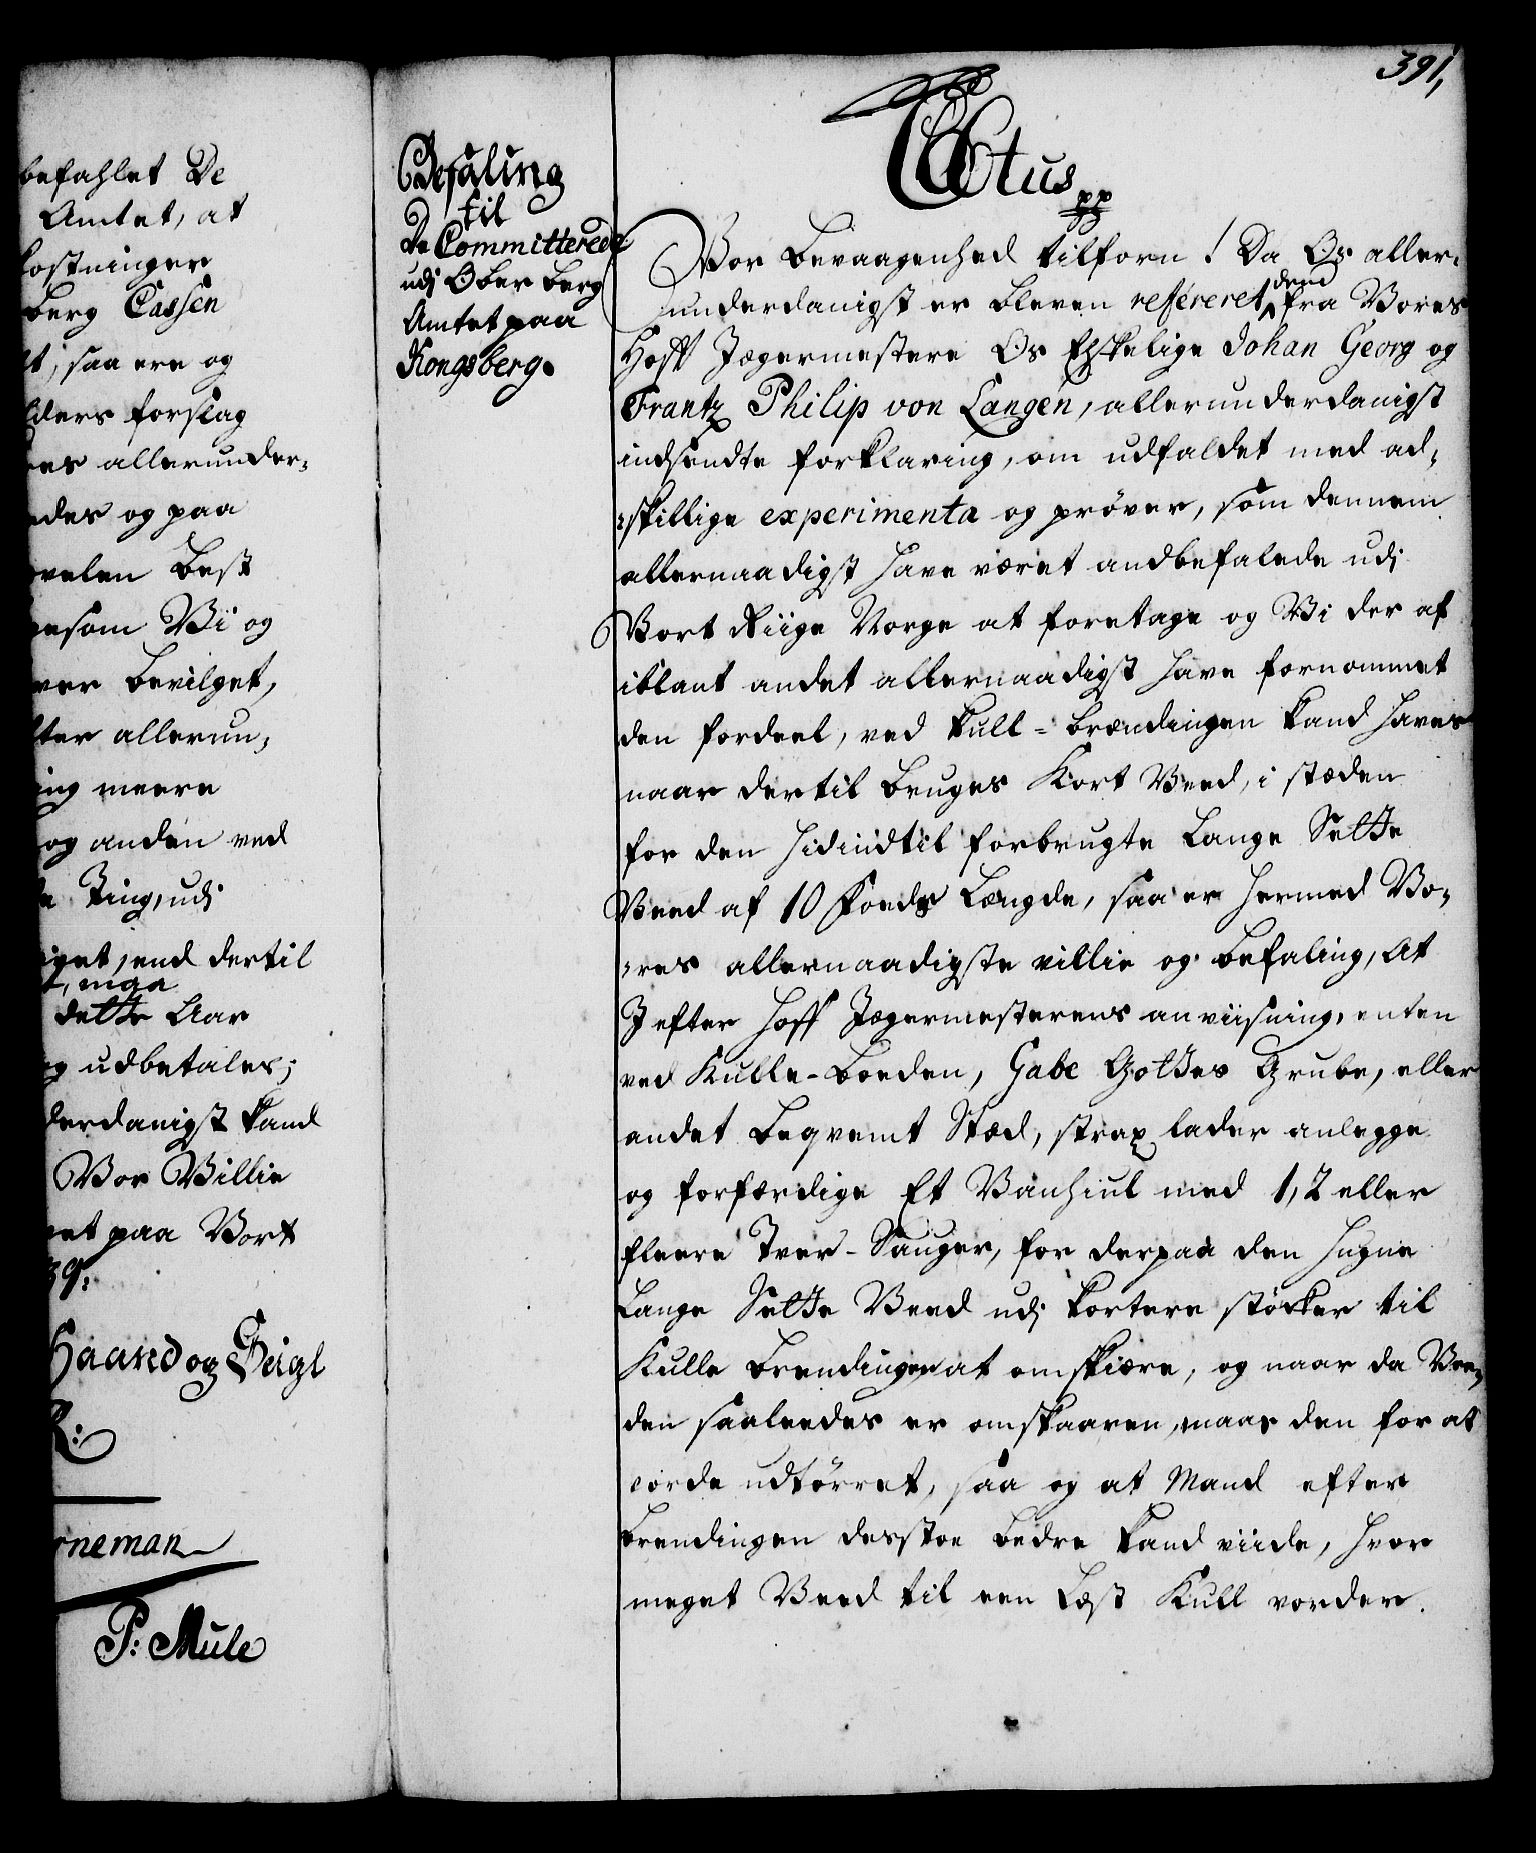 391,
befahlet De
Amtet, at
kostninger
berg Cassen
et, saa ere og
lders forslag
res allerunder¬
edes og paa
velen best
esom Vii og
ver bevilget,
fter allerun¬
ing meere
og anden ved
Ting, udj
get, end dertil
t, mga
dette Aar
og udbetales;
derdanigst kand
Vor Villie
et paa Vort
39:
Haand og Seigl
R:
rneman
P: Mule
Befaling
til
De Committerede
udj Ober Berg
Amtet paa
Kongsberg.
CCtus pp
Vor bevaagenhed tilforn! Da Os aller¬
underdanigst er bleven refereret dend fra Vores
Hoff Jægermestere Os Elskelige Johan Georg og
Frantz Philip von Langen, allerunderdanigst
indsendte forklaring, om udfaldet med ad¬
skillige experimenta og prøver, som dennem
allernaadigst have været andbefalede udj
Vort Riige Norge at foretage og Vi der af
iblant andet allernaadigst have fornommet
den fordeel, ved Kull-brændingen kand haves
naar dertil bruges Kort Veed, i stæden
for den hidindtil forbrugte Lange Sette
Veed af 10 Foeds Længde, saa er hermed Vo¬
res allernaadigste villie og befaling, At
I efter Hoff Jægermesterens anviisning, enten
ved Kulle-Boeden, Gabe Gottes Grube, eller
andet beqvemt Stæd, strax lader anlegge
og forfærdige Et Vanhiul med 1, 2 eller
fleere Tver-Sauger, for derpaa den hugne
Lange Sette Veed udj kortere støcker til
Kulle brendingen at omskiære, og naar da Vee¬
den saaleedes er omskaaren, maae den for at
vorde udtørret, saa og at Mand efter
brendingen desstoe bedre kand viide, hvor
meget Veed til een Læst Kull vorder